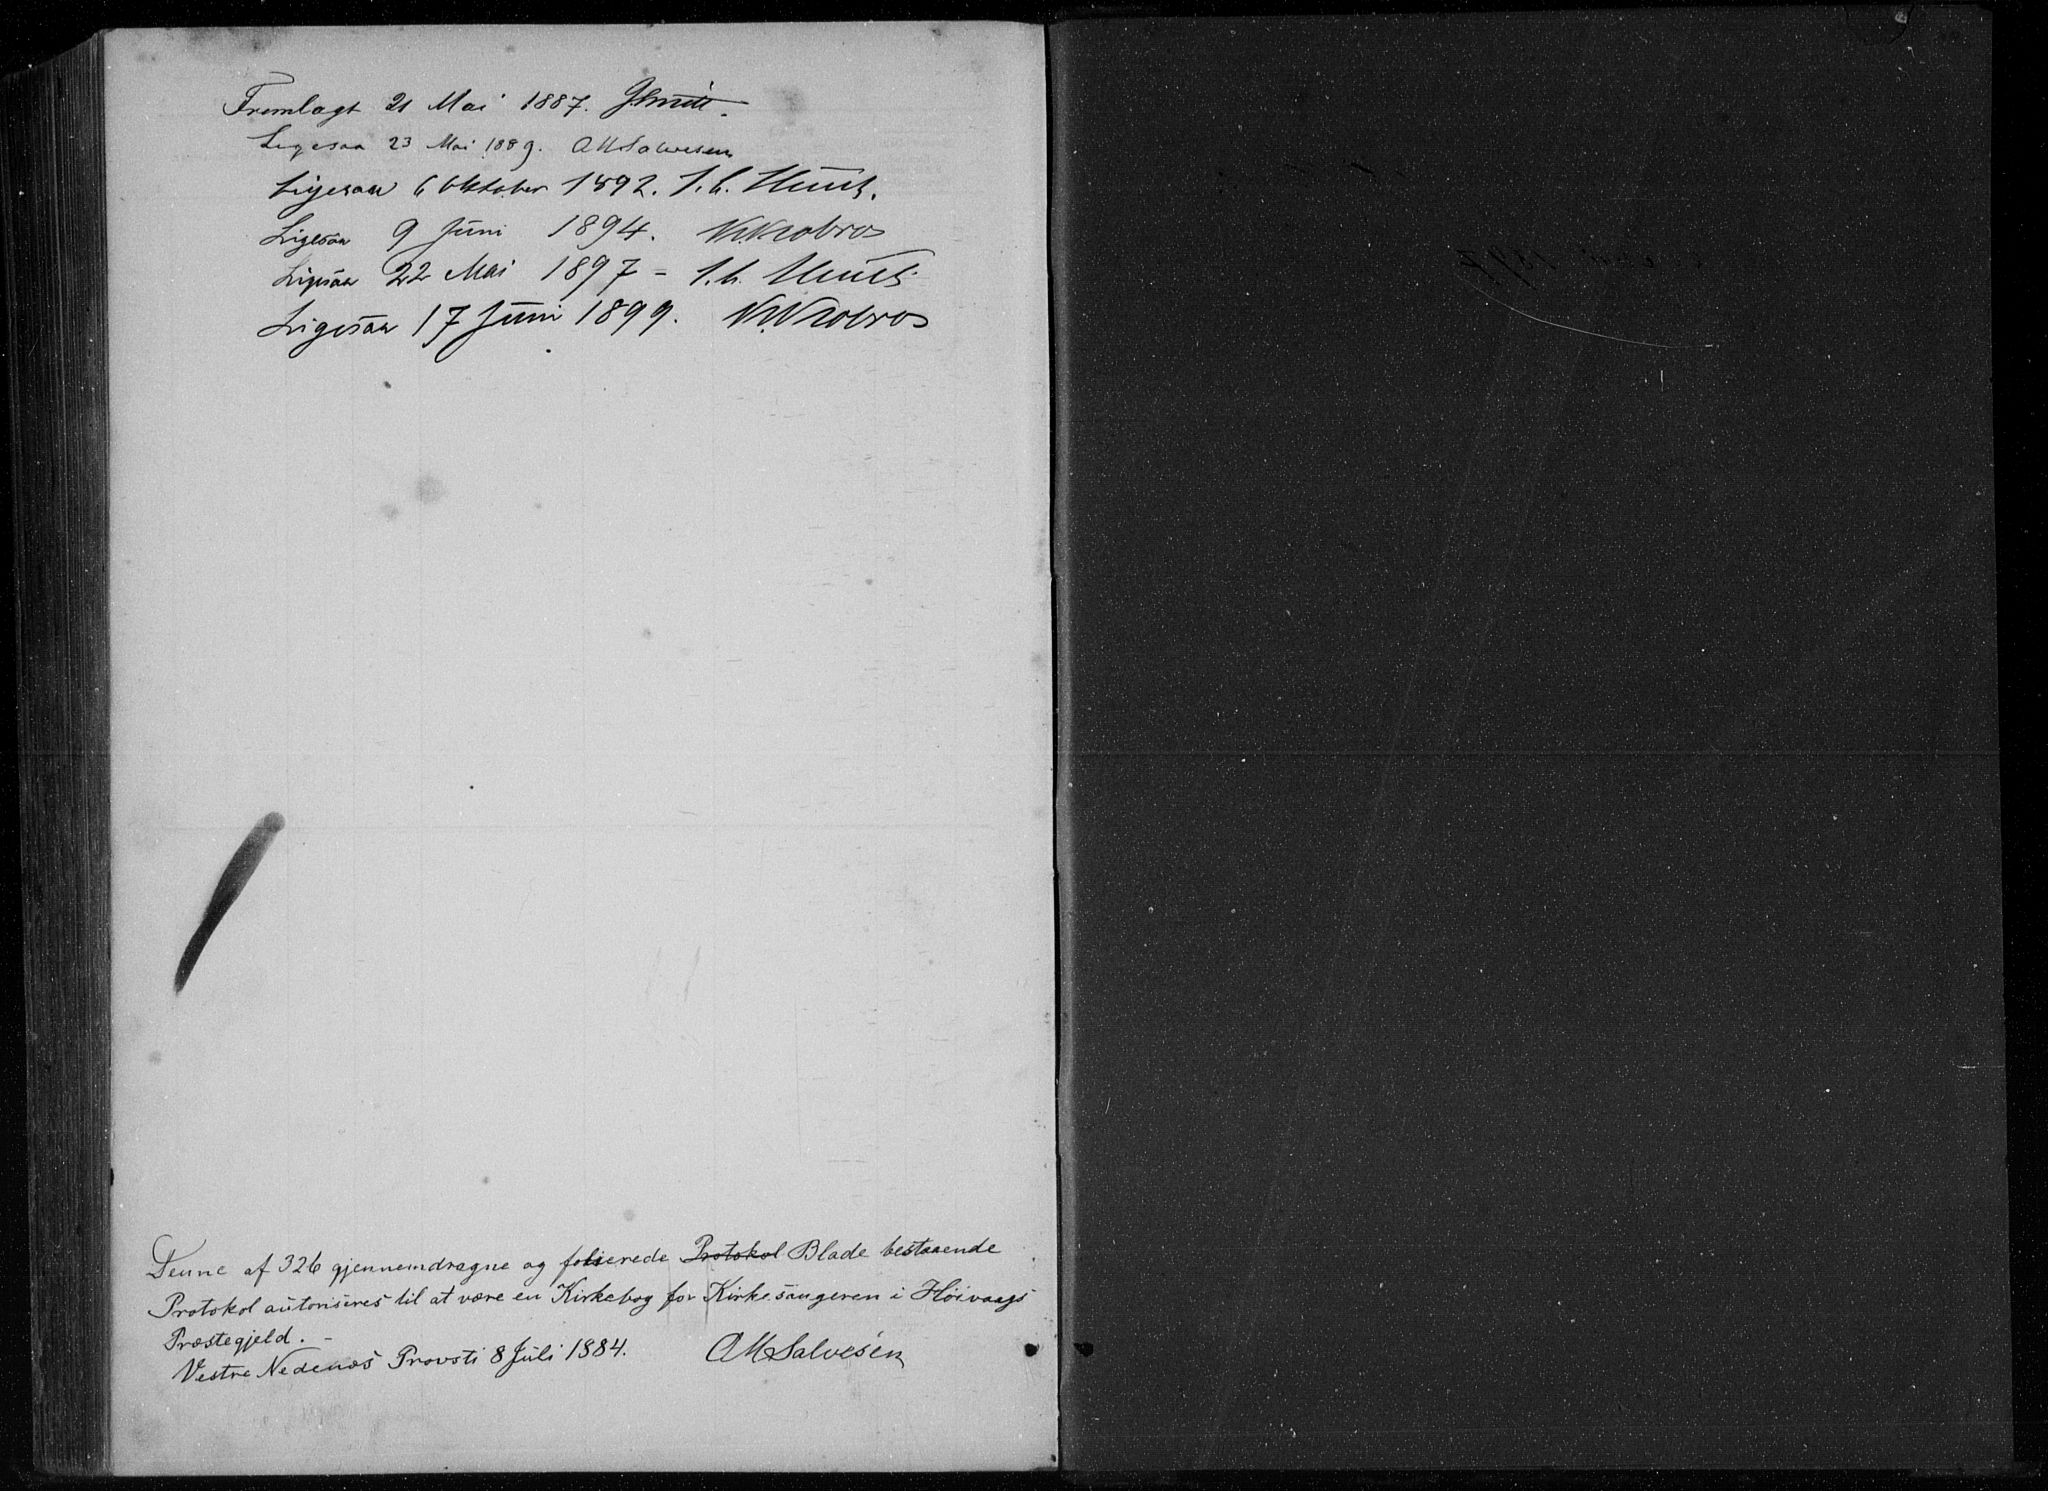 Fremlagt 21 Mai 1887.
Ligesaa 23 Mai 1889. AMSalvesen
Ligesaa 6 Oktober 1892.
Ligesaa 9 Juni 1894.
Ligesaa 22 Mai 1897 -
Ligesaa 17 Juni 1899.
Denne af 326 gjennemdragne og folierede Protokol Blade bestaaende
Protokol autoriseres til at være en Kirkebog for Kirkesangeren i Høivaags
Præstegjeld. -
Vestre Nedenæs Provsti 8 Juli 1884. AMSalvesen